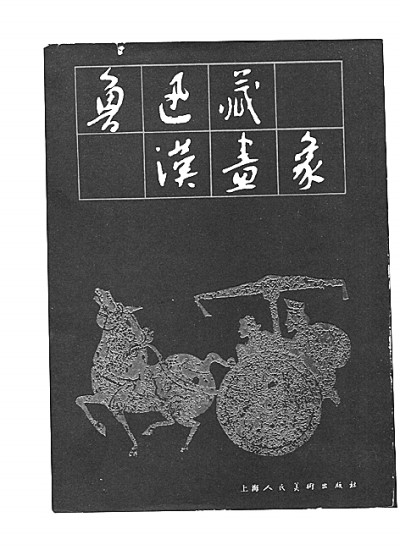 鲁迅藏
漢畫象
上海人民美術出版社